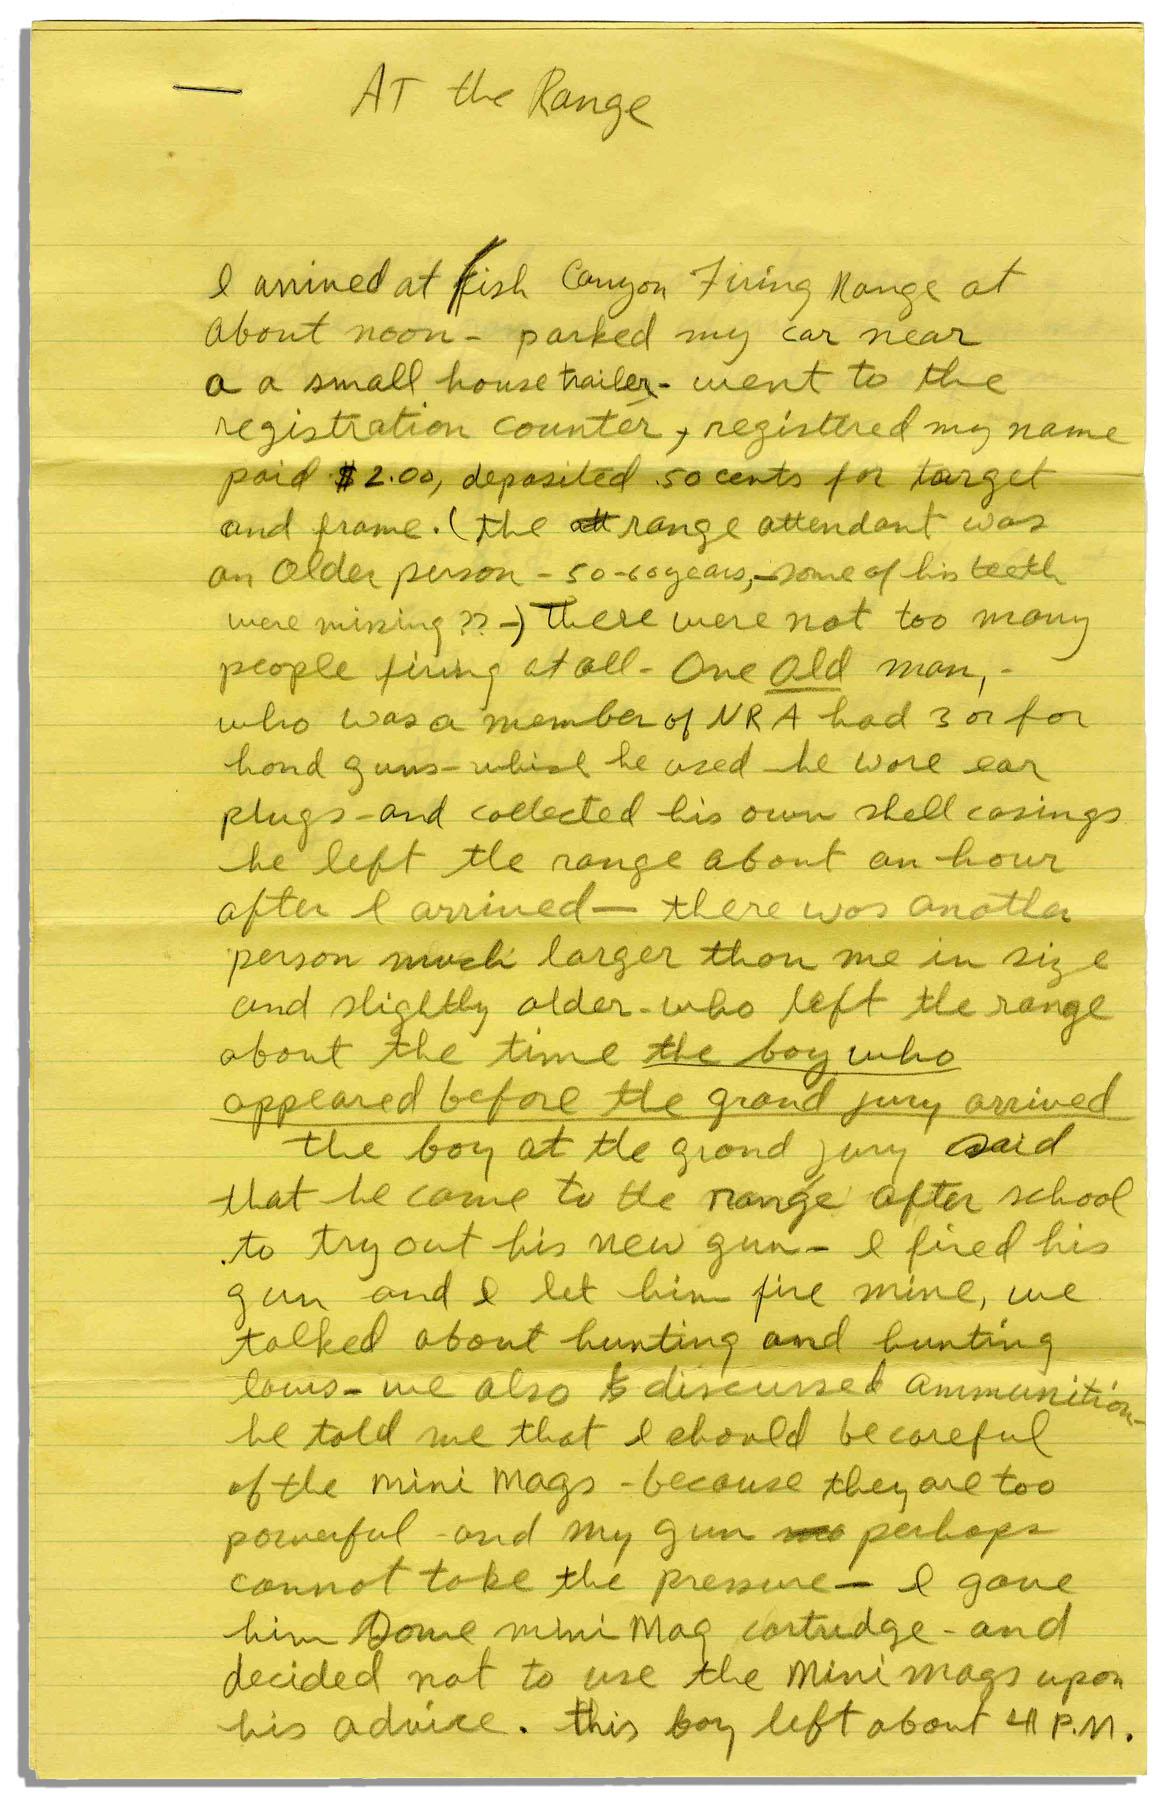 At the Range
I arrived at Fish Canyon Firing Range at
about noon - parked my car near
a a small house trailer - went to the
registration counter, registered my name
paid $2.00, deposited .50 cents for target
and frame. (the att range attendant was
an older person - 50-60 years, - some of his teeth
were missing ?? -) There were not too many
people firing at all - One old man, -
who was a member of NRA had 3 or for
hand guns - which he used - he wore ear
plugs - and collected his own shell casings
he left the range about an hour
after I arrived - there was another
person much larger than me in size
and slightly older - who left the range
about the time the boy who
appeared before the grand jury arrived
the boy at the grand jury said
that he came to the range after school
to try out his new gun - I fired his
gun and I let him fire mine, we
talked about hunting and hunting
laws - we also discussed ammunition -
he told me that I should be careful
of the mini mags - because they are too
powerful - and my gun perhaps
cannot take the pressure - I gave
him some mini Mag cartrudge - and
decided not to use the Mini mags upon
his advice. this boy left about 4 P.M.